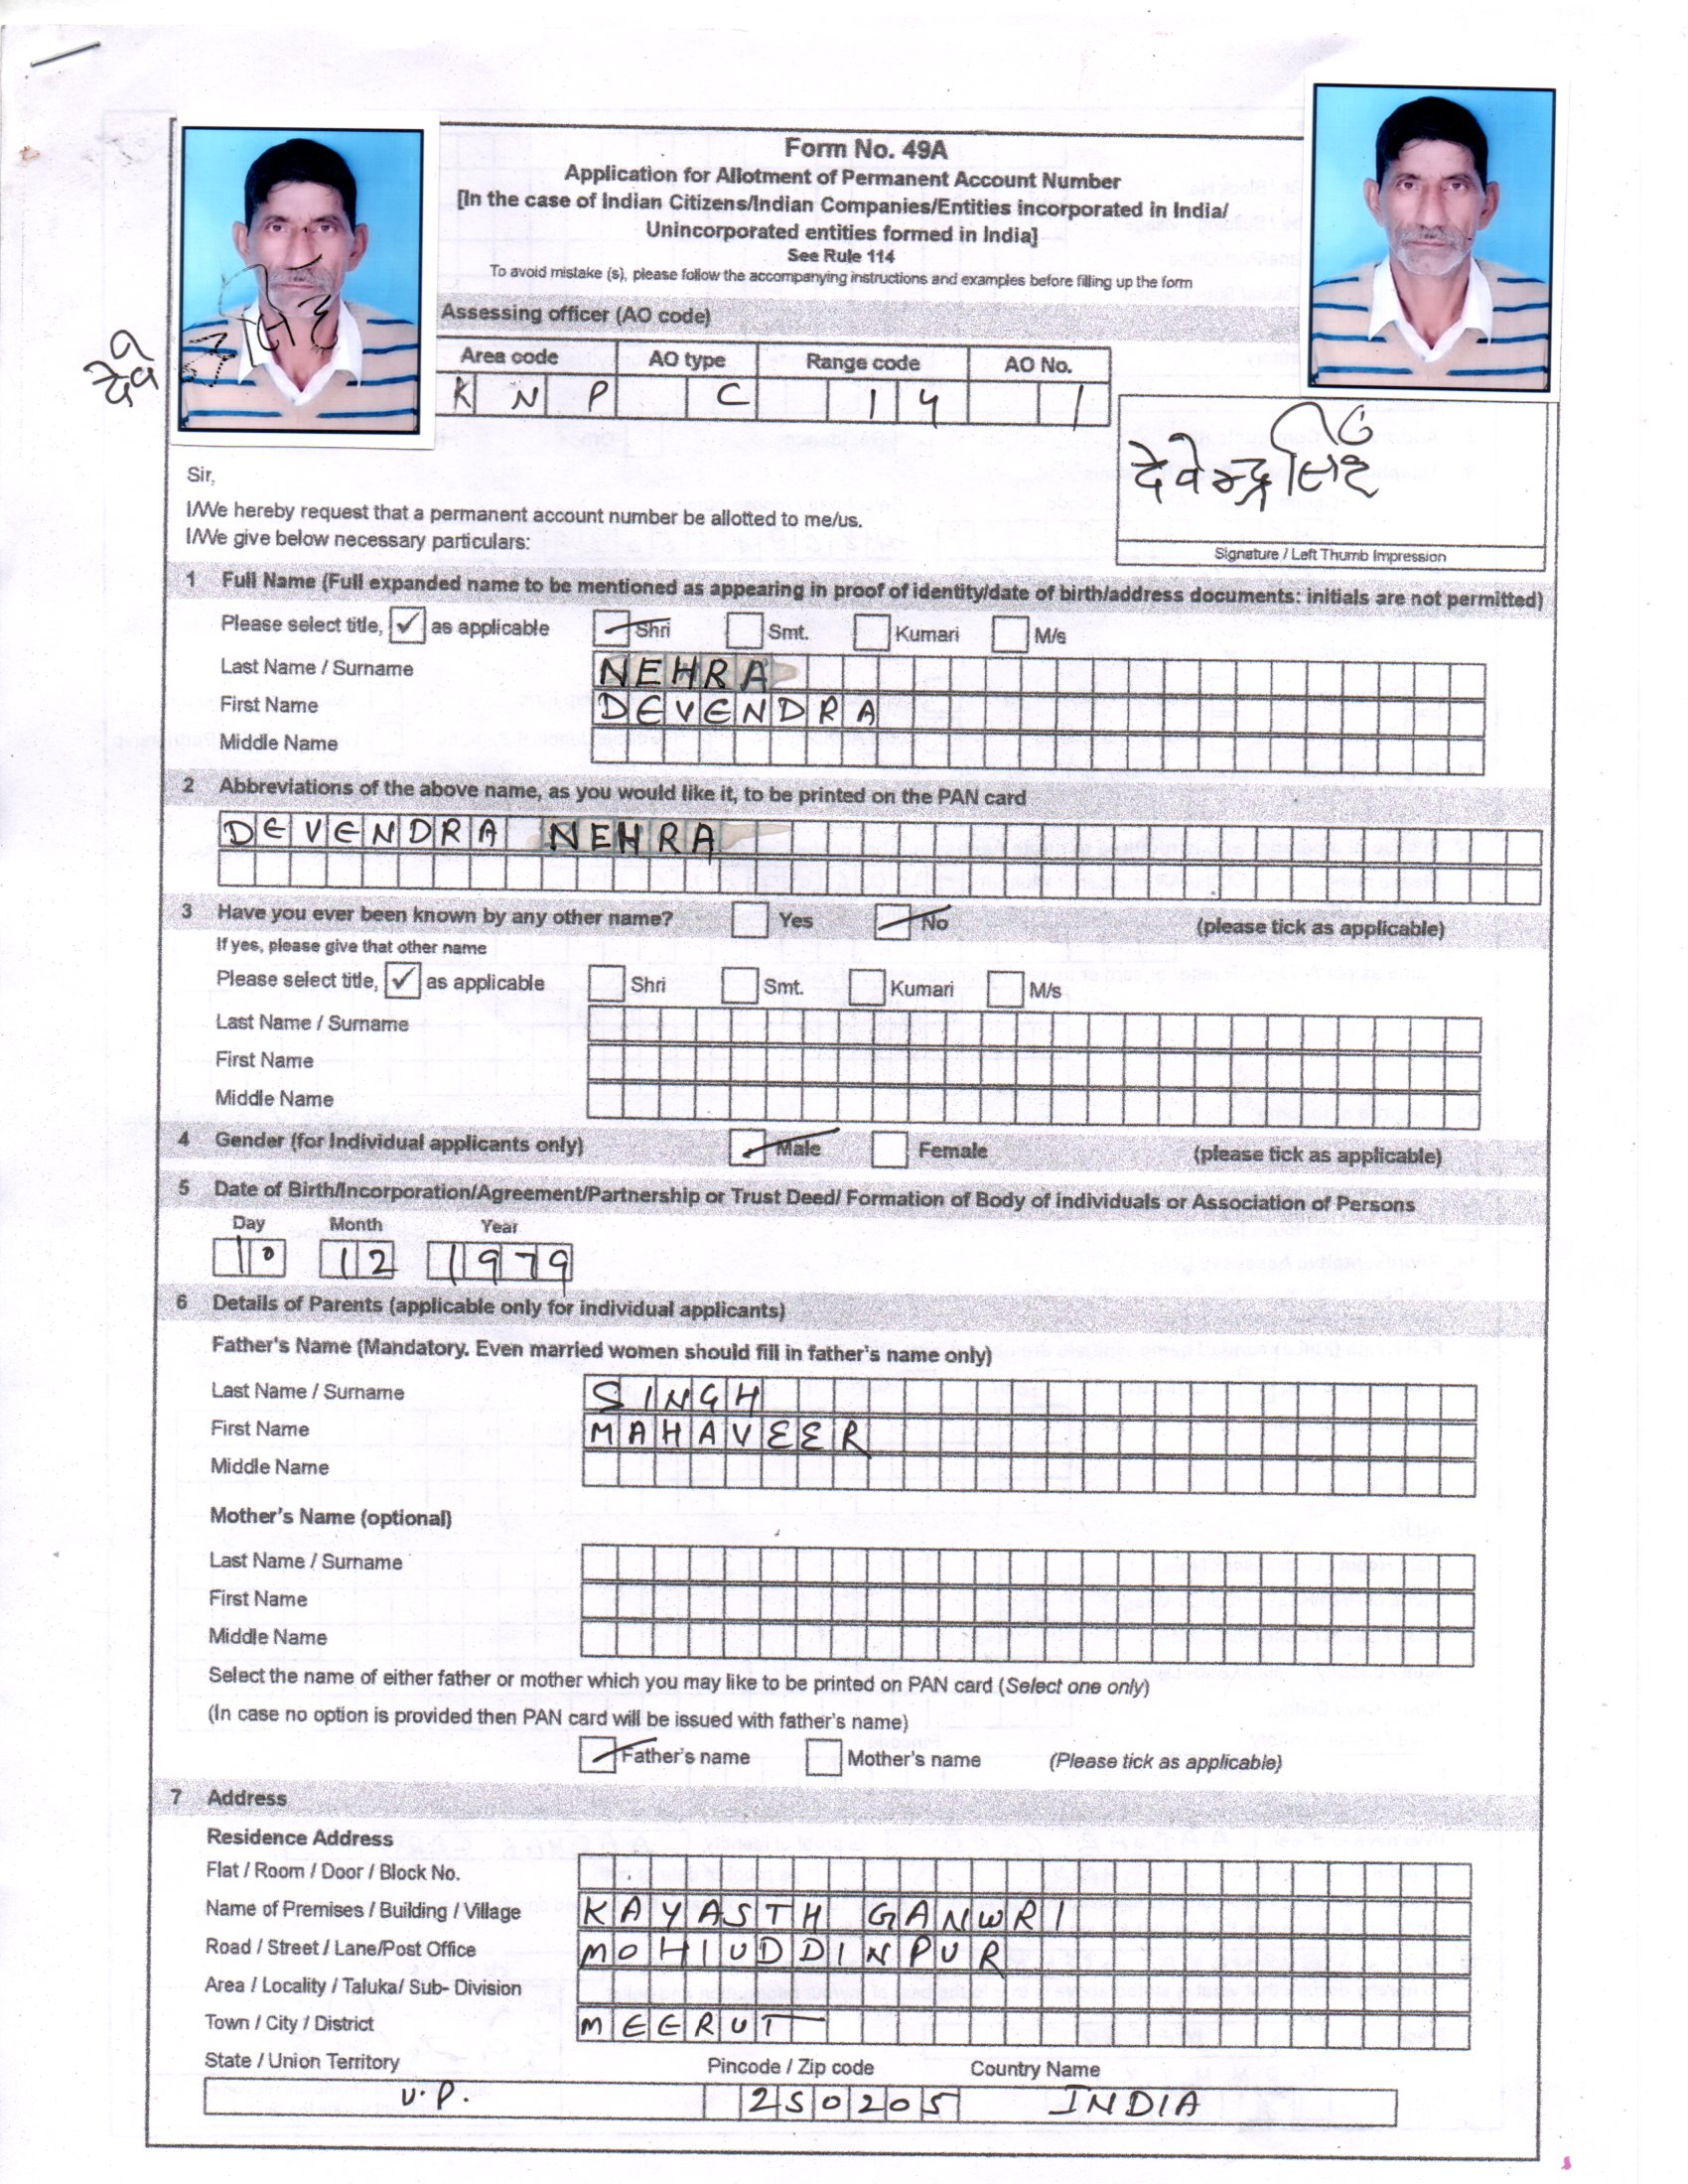 Form No. 49A
Application for Allotment of Permanent Account Number
[In the case of Indian Citizens/Indian Companies/Entities incorporated in India/
Unincorporated entities formed in India]
See Rule 114
To avoid mistake (s), please follow the accompanying instructions and examples before filling up the form
Assessing officer (AO code)
Area code AO type Range code AO No.
KNP C 14 1
देवेन्द्र सिंह
Signature / Left Thumb Impression
Sir,
I/We hereby request that a permanent account number be allotted to me/us.
I/We give below necessary particulars:
1 Full Name (Full expanded name to be mentioned as appearing in proof of identity/date of birth/address documents: initials are not permitted)
Please select title, ✓ as applicable Shri Smt. Kumari M/s
Last Name / Surname NEHRA
First Name DEVENDRA
Middle Name
2 Abbreviations of the above name, as you would like it, to be printed on the PAN card
DEVENDRA NEHRA
3 Have you ever been known by any other name? Yes No (please tick as applicable)
If yes, please give that other name
Please select title, ✓ as applicable Shri Smt. Kumari M/s
Last Name / Surname
First Name
Middle Name
4 Gender (for Individual applicants only) Male Female (please tick as applicable)
5 Date of Birth/Incorporation/Agreement/Partnership or Trust Deed/ Formation of Body of individuals or Association of Persons
Day Month Year
10 12 1979
6 Details of Parents (applicable only for individual applicants)
Father's Name (Mandatory. Even married women should fill in father's name only)
Last Name / Surname SINGH
First Name MAHAVEER
Middle Name
Mother's Name (optional)
Last Name / Surname
First Name
Middle Name
Select the name of either father or mother which you may like to be printed on PAN card (Select one only)
(In case no option is provided then PAN card will be issued with father's name)
Father's name Mother's name (Please tick as applicable)
7 Address
Residence Address
Flat / Room / Door / Block No.
Name of Premises / Building / Village KAYASTH GANWRI
Road / Street / Lane/Post Office MOHIUDDINPUR
Area / Locality / Taluka/ Sub- Division
Town / City / District MEERUT
State / Union Territory Pincode / Zip code Country Name
U.P. 250205 INDIA